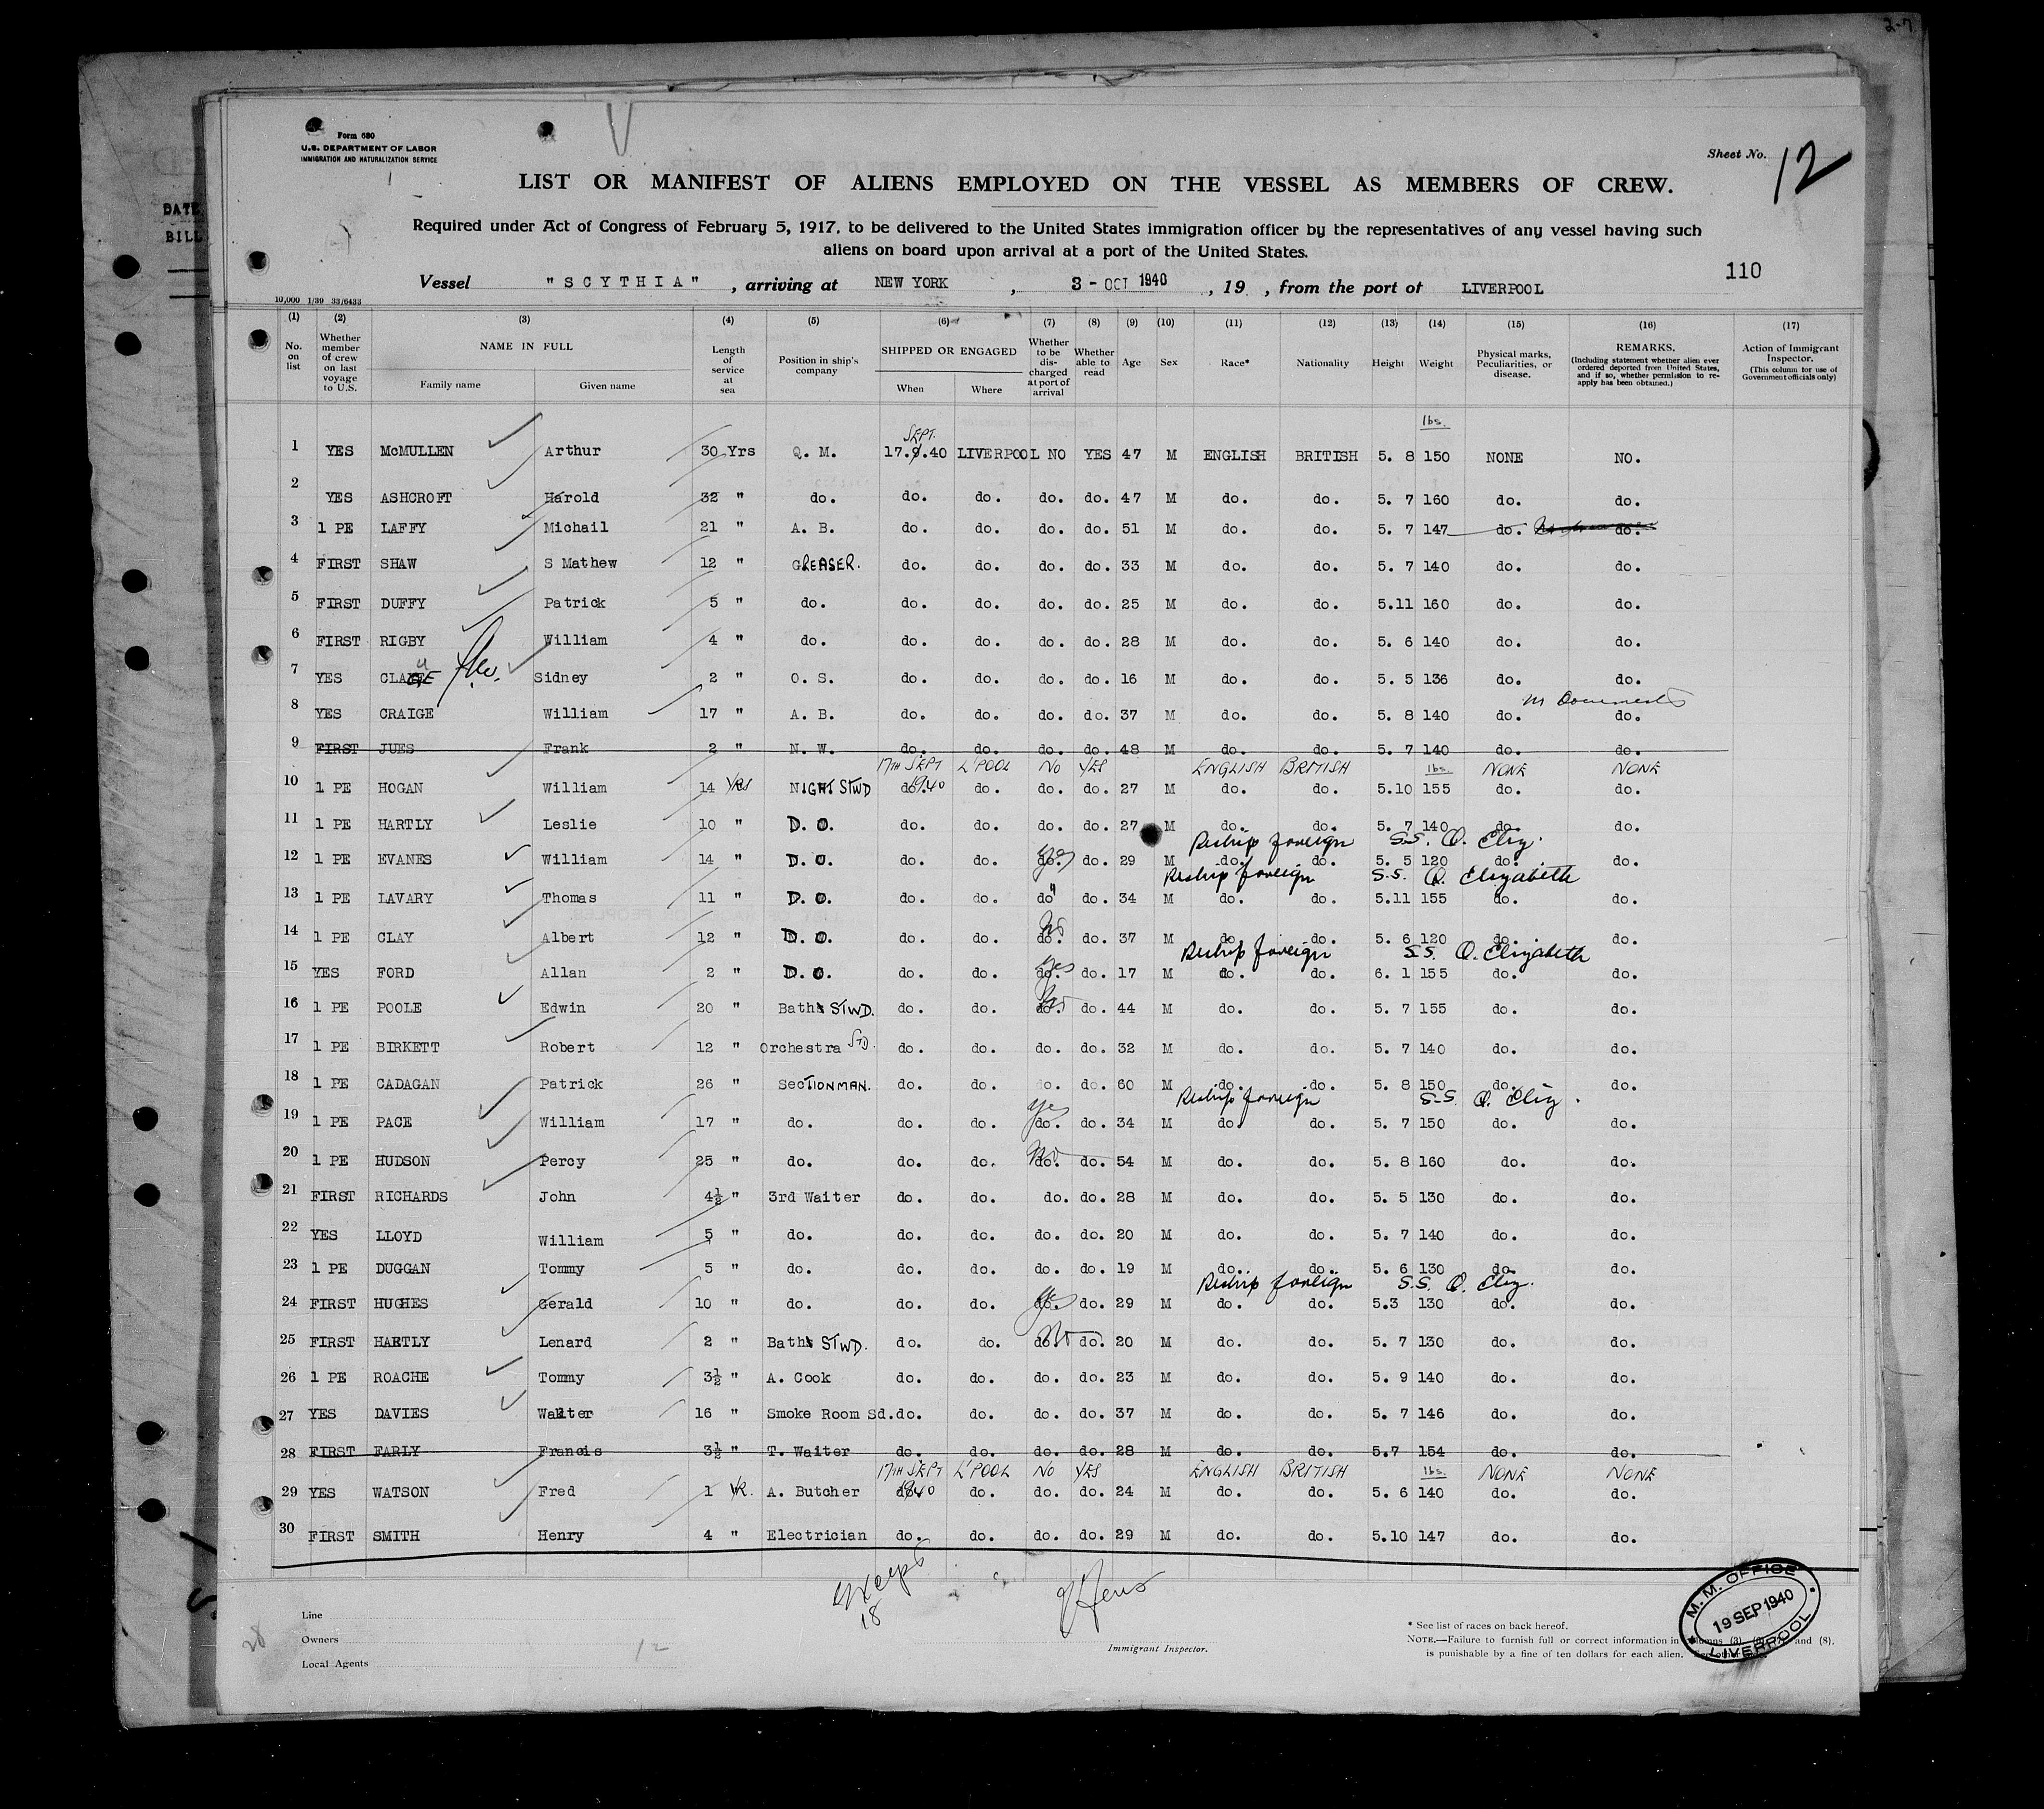 2-7
DATE
BILL
Form 680
U.S. DEPARTMENT OF LABOR
IMMIGRATION AND NATURALIZATION SERVICE
Sheet No. 12
LIST OR MANIFEST OF ALIENS EMPLOYED ON THE VESSEL AS MEMBERS OF CREW.
Required under Act of Congress of February 5, 1917, to be delivered to the United States immigration officer by the representatives of any vessel having such
aliens on board upon arrival at a port of the United States.
110
Vessel "SCYTHIA", arriving at NEW YORK, 3 - OCT 1940, 19 , from the port of LIVERPOOL
10,000 1/39 33/6433
(1) (2) (3) (4) (5) (6) (7) (8) (9) (10) (11) (12) (13) (14) (15) (16) (17)
No. on list
Whether member of crew on last voyage to U.S.
NAME IN FULL
Family name Given name
Length of service at sea
Position in ship's company
SHIPPED OR ENGAGED
When Where
Whether to be discharged at port of arrival
Whether able to read
Age Sex Race* Nationality Height Weight
Physical marks, Peculiarities, or disease.
REMARKS.
(Including statement whether alien ever ordered deported from United States, and if so, whether permission to re-apply has been obtained.)
Action of Immigrant Inspector.
(This column for use of Government officials only)
lbs.
SEPT.
1 YES McMULLEN Arthur 30 Yrs Q. M. 17.9.40 LIVERPOOL NO YES 47 M ENGLISH BRITISH 5. 8 150 NONE NO.
2 YES ASHCROFT Harold 32 " do. do. do. do. do. 47 M do. do. 5. 7 160 do. do.
3 1 PE LAFFY Michail 21 " A. B. do. do. do. do. 51 M do. do. 5. 7 147 do. do.
4 FIRST SHAW S Mathew 12 " GREASER. do. do. do. do. 33 M do. do. 5. 7 140 do. do.
5 FIRST DUFFY Patrick 5 " do. do. do. do. do. 25 M do. do. 5.11 160 do. do.
6 FIRST RIGBY William 4 " do. do. do. do. do. 28 M do. do. 5. 6 140 do. do.
7 YES Sidney 2 " O. S. do. do. do. do. 16 M do. do. 5. 5 136 do. do.
8 YES CRAIGE William 17 " A. B. do. do. do. do. 37 M do. do. 5. 8 140 do. do.
9 FIRST JUES Frank 2 " N. W. do. do. do. do. 48 M do. do. 5. 7 140 do. do.
17TH SEPT L'POOL NO YES ENGLISH BRITISH lbs. NONE NONE
10 1 PE HOGAN William 14 YRS NIGHT STWD do. 1940 do. do. do. 27 M do. do. 5.10 155 do. do.
11 1 PE HARTLY Leslie 10 " D. O. do. do. do. do. 27 M do. do. 5. 7 140 do. do.
Reship foreign S.S. Q. Eliz.
12 1 PE EVANES William 14 " D. O. do. do. do. Yes do. 29 M do. do. 5. 5 120 do. do.
Reship foreign S.S. Q. Elizabeth
13 1 PE LAVARY Thomas 11 " D. O. do. do. do. " do. 34 M do. do. 5.11 155 do. do.
14 1 PE CLAY Albert 12 " D. O. do. do. do. No do. 37 M do. do. 5. 6 120 do. do.
Reship foreign S.S. Q. Elizabeth
15 YES FORD Allan 2 " D. O. do. do. do. Yes do. 17 M do. do. 6. 1 155 do. do.
16 1 PE POOLE Edwin 20 " Bath STWD. do. do. do. No do. 44 M do. do. 5. 7 155 do. do.
17 1 PE BIRKETT Robert 12 " Orchestra STD. do. do. do. do. 32 M do. do. 5. 7 140 do. do.
18 1 PE CADAGAN Patrick 26 " SECTIONMAN. do. do. do. do. 60 M do. do. 5. 8 150 do. do.
Reship foreign S.S. Q. Eliz.
19 1 PE PACE William 17 " do. do. do. do. Yes do. 34 M do. do. 5. 7 150 do. do.
20 1 PE HUDSON Percy 25 " do. do. do. do. No do. 54 M do. do. 5. 8 160 do. do.
21 FIRST RICHARDS John 4½ " 3rd Waiter do. do. do. do. 28 M do. do. 5. 5 130 do. do.
22 YES LLOYD William 5 " do. do. do. do. do. 20 M do. do. 5. 7 140 do. do.
23 1 PE DUGGAN Tommy 5 " do. do. do. do. do. 19 M do. do. 5. 6 130 do. do.
Reship foreign S.S. Q. Eliz.
24 FIRST HUGHES Gerald 10 " do. do. do. do. Yes do. 29 M do. do. 5.3 130 do. do.
25 FIRST HARTLY Lenard 2 " Bath STWD. do. do. do. No do. 20 M do. do. 5. 7 130 do. do.
26 1 PE ROACHE Tommy 3½ " A. Cook do. do. do. do. 23 M do. do. 5. 9 140 do. do.
27 YES DAVIES Walter 16 " Smoke Room Sd. do. do. do. do. 37 M do. do. 5. 7 146 do. do.
28 FIRST EARLY Francis 3½ " T. Waiter do. do. do. do. 28 M do. do. 5.7 154 do. do.
17TH SEPT L'POOL NO YES ENGLISH BRITISH lbs. NONE NONE
29 YES WATSON Fred 1 YR. A. Butcher do. 1940 do. do. do. 24 M do. do. 5. 6 140 do. do.
30 FIRST SMITH Henry 4 " Electrician do. do. do. do. 29 M do. do. 5.10 147 do. do.
18
Line
Owners
28
12
Local Agents
Immigrant Inspector.
* See list of races on back hereof.
NOTE.—Failure to furnish full or correct information in columns (3) and (8).
is punishable by a fine of ten dollars for each alien.
M. M. OFFICE
19 SEP 1940
LIVERPOOL